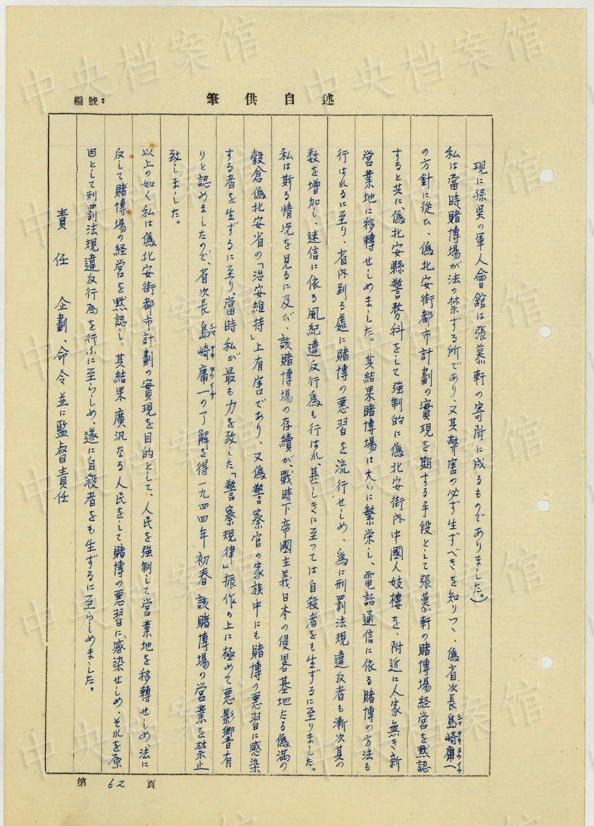 編號：
述自供筆
現に孫吳の軍人會館は張慕軒の寄附に成るものでありました。）
私は當時賭博場が法の禁ずる所であり、又其弊害の必ず生ずべきを知りつゝ、偽省次長島崎庸一
の方針に從ひ、偽北安街都市計劃の實現を期する手段として張慕軒の賭博場経営を黙認
すると共に、偽北安縣警務科をして强制的に偽北安街内中國人妓樓を、附近に人家無き新
営業地に移轉せしめました。其結果賭博場は大いに繁栄し、電話通信に依る賭博の方法も
行はれるに至り、省内到る處に賭博の悪習を流行せしめ、為に刑罰法規違反者も漸次其の
数を増加し、迷信に依る風紀違反行為も行はれ甚しきに至つては自殺者をも生ずるに至りました。
私は斯る情况を見るに及び、該賭博場の存續が、戰時下帝國主義日本の侵畧基地たる偽満の
穀倉偽北安省の「治安維持」上有害であり、又偽警察官の家族中にも賭博の悪習に感染
する者を生ずるに至り、當時私が最も力を致した「警察規律」振作の上に極めて悪影響有
りと認めましたので、省次長島崎庸一の了解を得一九四四年初春該賭博場の営業を禁止
致しました。
以上の如く私は偽北安街都市計劃の實現を目的として、人民を强制して営業地を移轉せしめ法に
反して賭博場の経営を黙認し、其結果廣汎なる人民をして賭博の悪習に感染せしめ、それを原
因として刑罰法規違反行為を行ふに至らしめ、遂に自殺者をも生ずるに至らしめました。
責任　企劃、命令並に監督責任
第62頁
中央档案馆